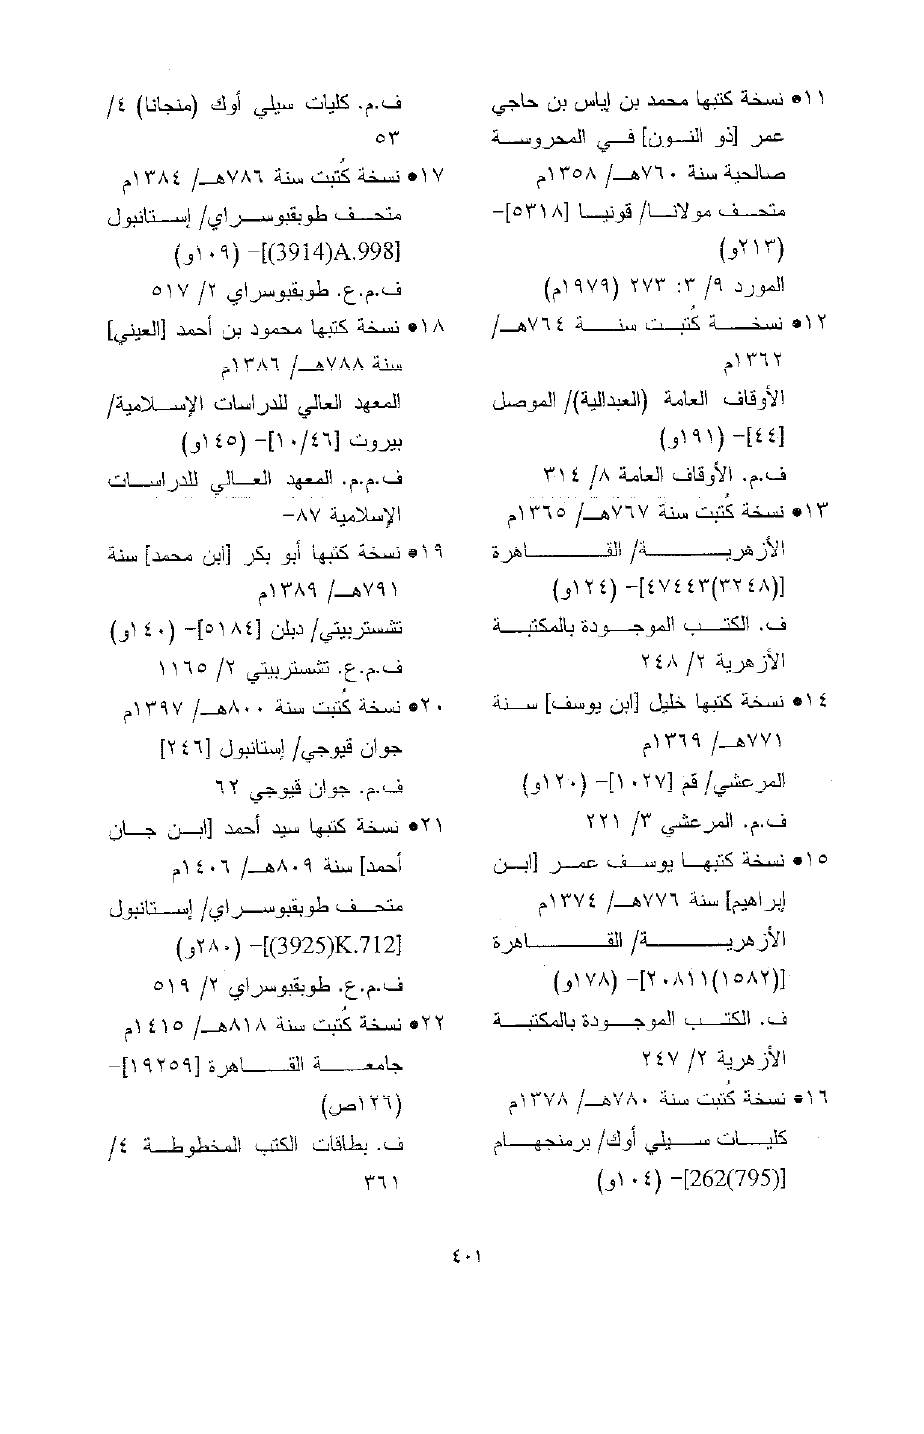 ١١• نسخة كتبها محمد بن إياس بن حاجي
عمر [ذو النون] في المحروسة
صالحية سنة ٧٦٠هـ/ ١٣٥٨م
متحف مولانا/ قونيا [٥٣١٨]-
(٢١٣و)
المورد ٩/ ٣: ٢٧٣ (١٩٧٩م)
١٢• نسخة كُتبت سنة ٧٦٤هـ/
١٣٦٢م
الأوقاف العامة (العبدالية)/ الموصل
[٤٤]- (١٩١و)
ف.م. الأوقاف العامة ٨/ ٣١٤
١٣• نسخة كُتبت سنة ٧٦٧هـ/ ١٣٦٥م
الأزهرية/ القاهرة
[(٣٢٤٨)٤٧٤٤٣]- (١٢٤و)
ف. الكتب الموجودة بالمكتبة
الأزهرية ٢/ ٢٤٨
١٤• نسخة كتبها خليل [ابن يوسف] سنة
٧٧١هـ/ ١٣٦٩م
المرعشي/ قم [١٠٢٧]- (١٢٠و)
ف.م. المرعشي ٣/ ٢٢١
١٥• نسخة كتبها يوسف عمر [ابن
إبراهيم] سنة ٧٧٦هـ/ ١٣٧٤م
الأزهرية/ القاهرة
[(١٥٨٢)٢٠٨١١]- (١٧٨و)
ف. الكتب الموجودة بالمكتبة
الأزهرية ٢/ ٢٤٧
١٦• نسخة كُتبت سنة ٧٨٠هـ/ ١٣٧٨م
كليات سيلي أوك/ برمنجهام
[262(795)]- (١٠٤و)
ف.م. كليات سيلي أوك (منجانا) ٤/
٥٣
١٧• نسخة كُتبت سنة ٧٨٦هـ/ ١٣٨٤م
متحف طوبقبوسراي/ إستانبول
[A.998(3914)]- (١٠٩و)
ف.م.ع. طوبقبوسراي ٢/ ٥١٧
١٨• نسخة كتبها محمود بن أحمد [العيني]
سنة ٧٨٨هـ/ ١٣٨٦م
المعهد العالي للدراسات الإسلامية/
بيروت [١٠/٤٦]- (١٤٥و)
ف.م.م. المعهد العالي للدراسات
الإسلامية ٨٧-
١٩• نسخة كتبها أبو بكر [ابن محمد] سنة
٧٩١هـ/ ١٣٨٩م
تشستربيتي/ دبلن [٥١٨٤]- (١٤٠و)
ف.م.ع. تشستربيتي ٢/ ١١٦٥
٢٠• نسخة كُتبت سنة ٨٠٠هـ/ ١٣٩٧م
جوان قيوجي/ إستانبول [٢٤٦]
ف.م. جوان قيوجي ٦٢
٢١• نسخة كتبها سيد أحمد [ابن جان
أحمد] سنة ٨٠٩هـ/ ١٤٠٦م
متحف طوبقبوسراي/ إستانبول
[K.712(3925)]- (٢٨٠و)
ف.م.ع. طوبقبوسراي ٢/ ٥١٩
٢٢• نسخة كُتبت سنة ٨١٨هـ/ ١٤١٥م
جامعة القاهرة [١٩٢٥٩]-
(١٢٦ص)
ف. بطاقات الكتب المخطوطة ٤/
٣٦١
٤٠١